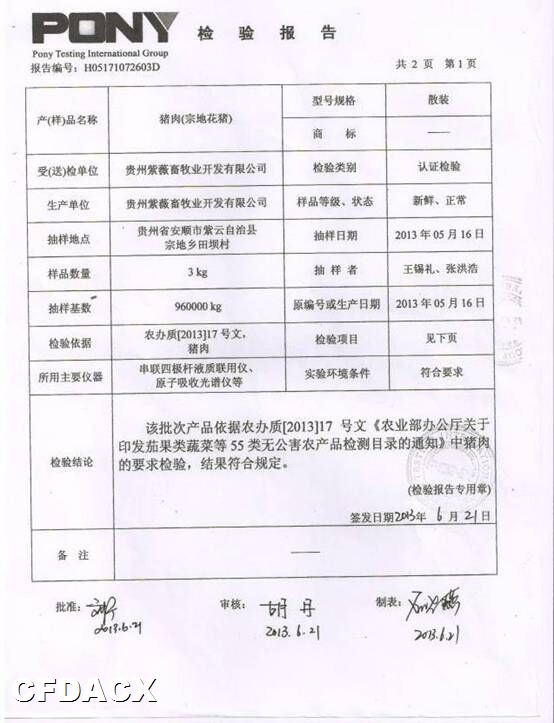 PONY
检 验 报 告
Pony Testing International Group
报告编号：H05171072603D
共 2 页 第 1 页
产(样)品名称 猪肉(宗地花猪) 型号规格 散装
商 标 ——
受(送)检单位 贵州紫薇畜牧业开发有限公司 检验类别 认证检验
生产单位 贵州紫薇畜牧业开发有限公司 样品等级、状态 新鲜、正常
抽样地点 贵州省安顺市紫云自治县
宗地乡田坝村 抽样日期 2013 年 05 月 16 日
样品数量 3 kg 抽 样 者 王锡礼、张洪浩
抽样基数 960000 kg 原编号或生产日期 2013 年 05 月 16 日
检验依据 农办质[2013]17 号文，
猪肉 检验项目 见下页
所用主要仪器 串联四极杆液质联用仪、
原子吸收光谱仪等 实验环境条件 符合要求
检验结论 该批次产品依据农办质[2013]17 号文《农业部办公厅关于
印发茄果类蔬菜等 55 类无公害农产品检测目录的通知》中猪肉
的要求检验，结果符合规定。
(检验报告专用章)
签发日期2013年 6 月 21 日
备 注 ——
批准： 审核：胡丹 制表：
2013.6.21 2013.6.21 2013.6.21
CFDACX